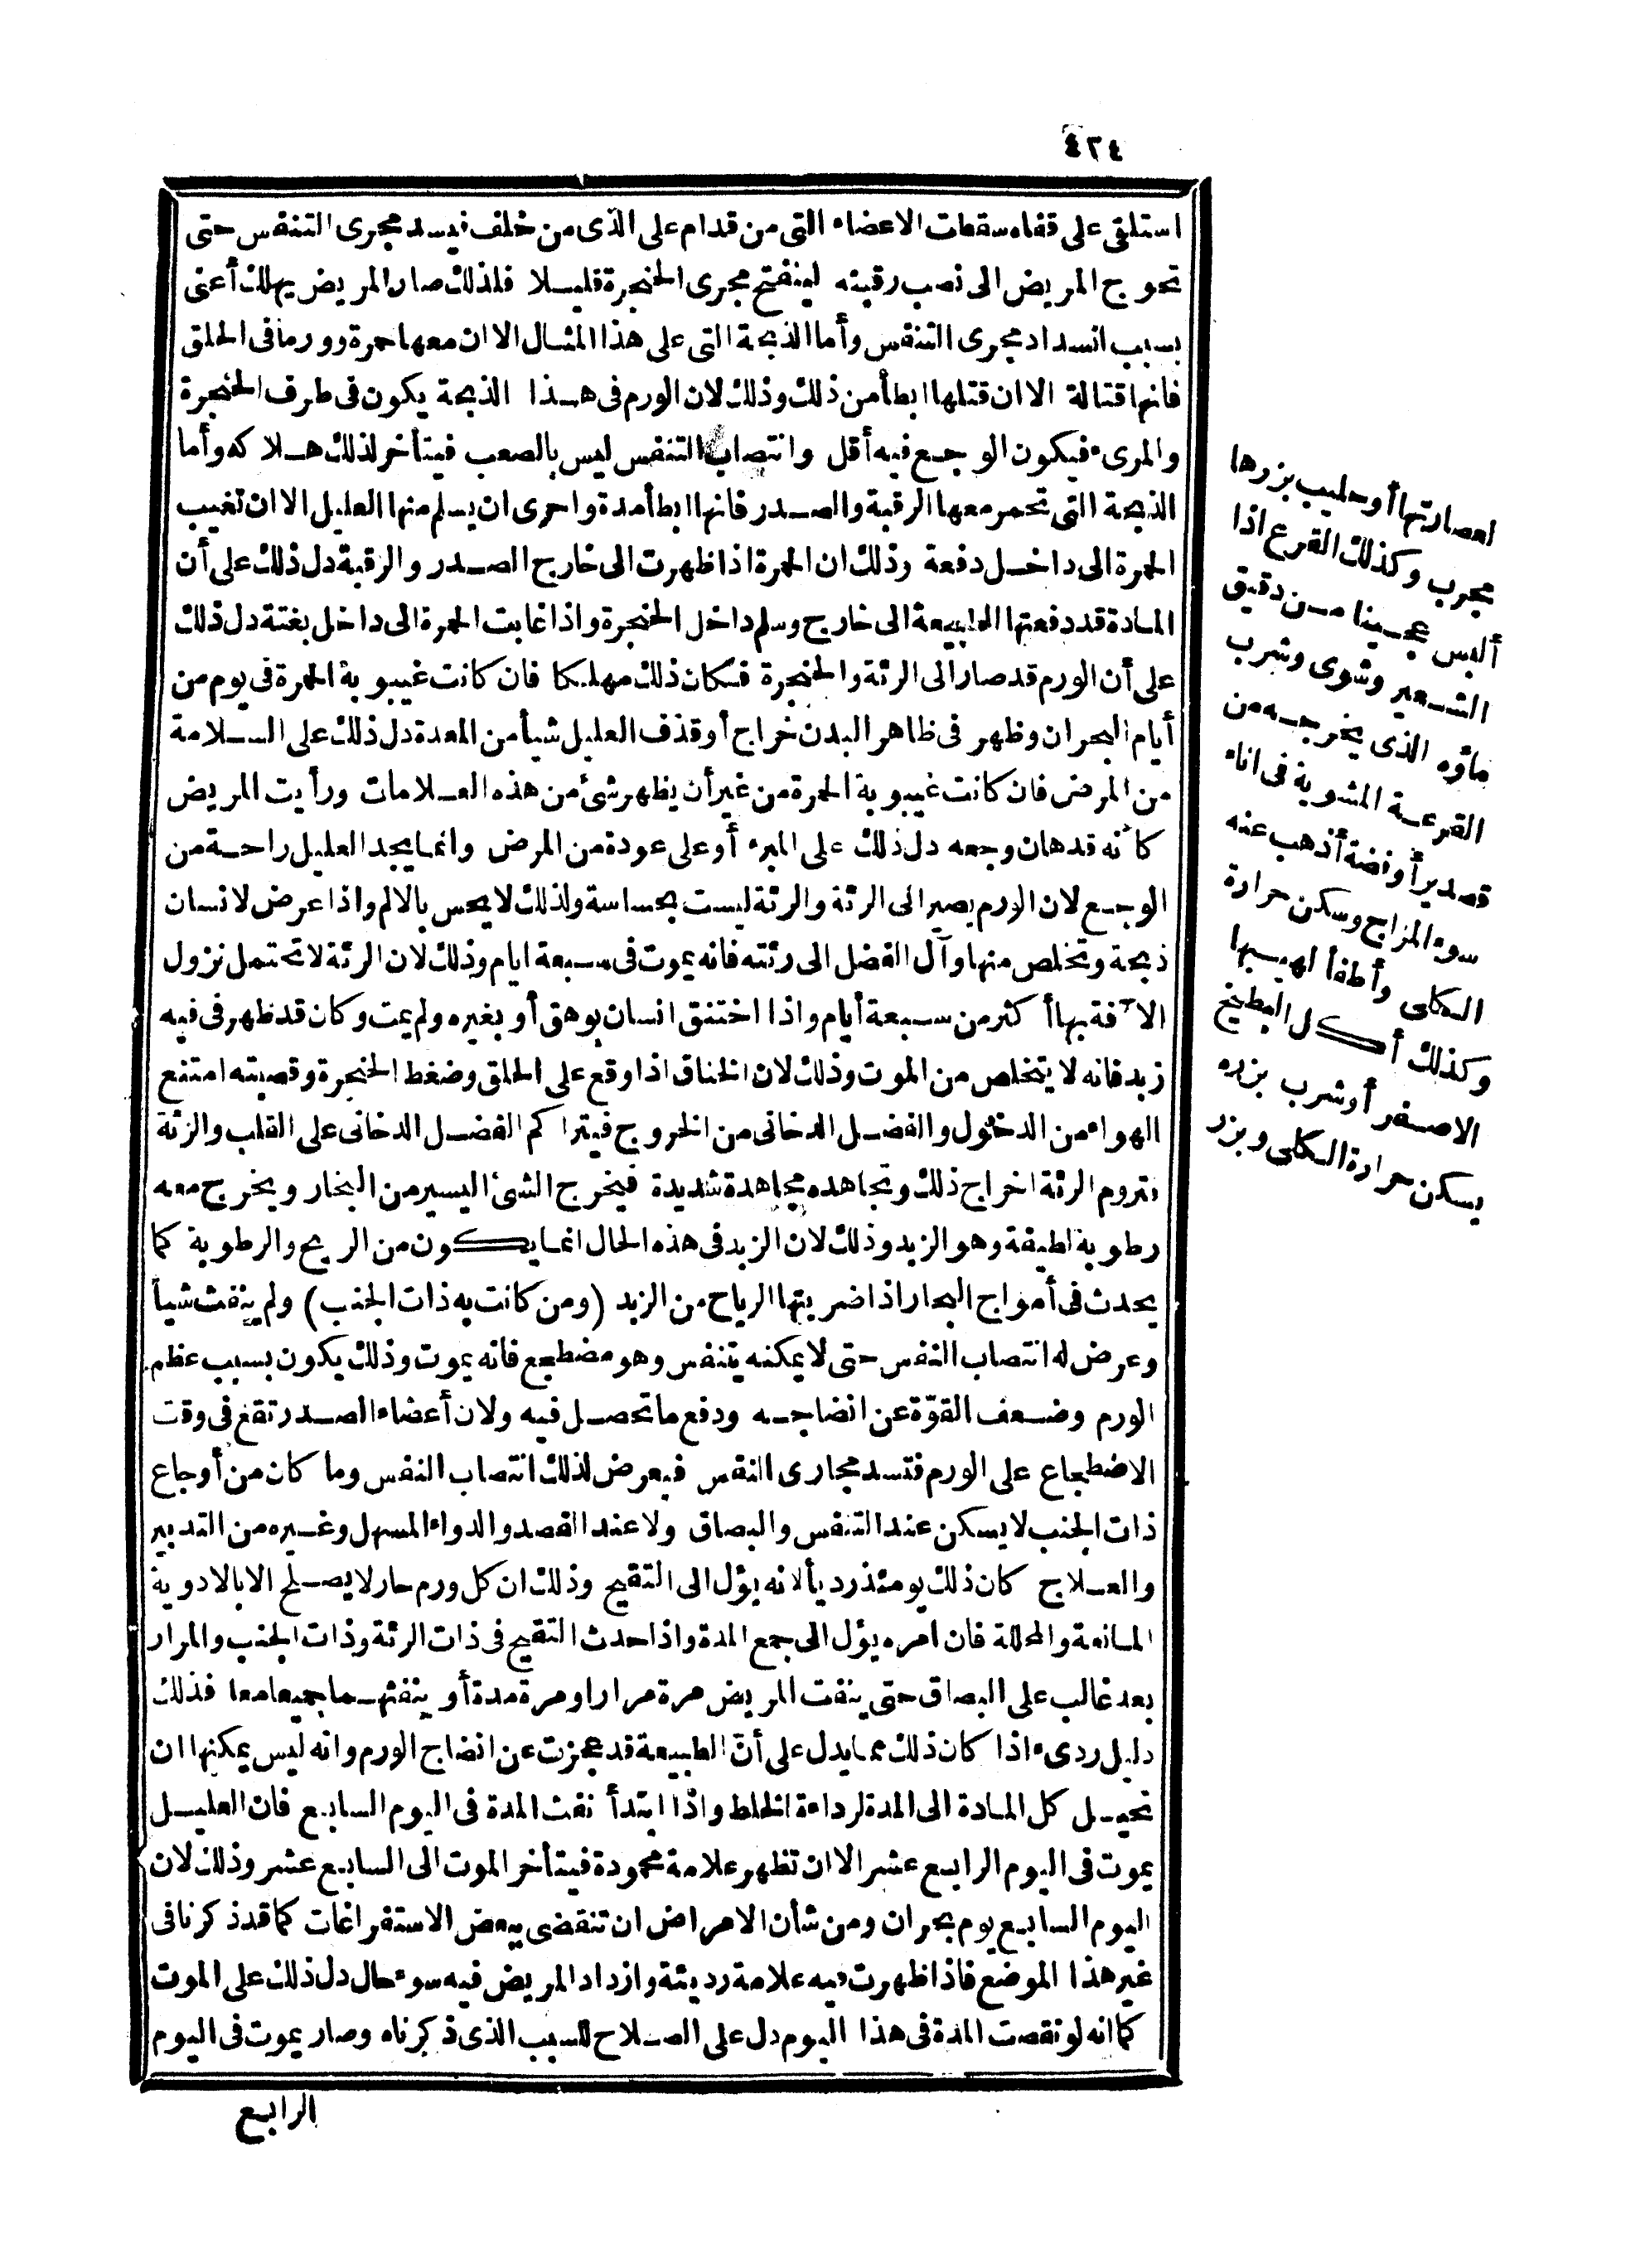 ٤٢٤
استلقى على قفاه سقطت الاعضاء التى من قدام على الذى من خلف فيسد مجرى التنفس حتى
تحوج المريض الى نصب رقبته لينفتح مجرى الحنجرة قليلا فلذلك صار المريض يهلك أعنى
بسبب انسداد مجرى التنفس وأما الذبحة التى على هذا المثال الا ان معها حمرة وورما فى الحلق
فانها قتالة الا ان قتلها ابطأ من ذلك وذلك لان الورم فى هذا الذبحة يكون فى طرف الحنجرة
والمرىء فيكون الوجع فيه أقل وانتصاب التنفس ليس بالصعب فيتأخر لذلك هلاكه وأما
الذبحة التى تحمر معها الرقبة والصدر فانها ابطأ مدة واحرى ان يسلم منها العليل الا ان تغيب
الحمرة الى داخل دفعة وذلك ان الحمرة اذا ظهرت الى خارج الصدر والرقبة دل ذلك على أن
المادة قد دفعتها الطبيعة الى خارج وسلم داخل الحنجرة واذا غابت الحمرة الى داخل بغتة دل ذلك
على أن الورم قد صار الى الرئة والحنجرة فكان ذلك مهلكا فان كانت غيبوبة الحمرة فى يوم من
أيام البحران وظهر فى ظاهر البدن خراج أو قذف العليل شيأ من المعدة دل ذلك على السلامة
من المرض فان كانت غيبوبة الحمرة من غير أن يظهر شئ من هذه العلامات ورأيت المريض
كأنه قد هان وجعه دل ذلك على البرء أو على عودة من المرض وانما يجد العليل راحة من
الوجع لان الورم يصير الى الرئة والرئة ليست بحساسة ولذلك لا يحس بالالم واذا عرض لانسان
ذبحة وتخلص منها وآل الفضل الى رئته فانه يموت فى سبعة ايام وذلك لان الرئة لا تحتمل نزول
الآفة بها أكثر من سبعة أيام واذا اختنق انسان بوهق أو بغيره ولم يمت وكان قد ظهر فى فيه
زبد فانه لا يتخلص من الموت وذلك لان الخناق اذا وقع على الحلق وضغط الحنجرة وقصبته امتنع
الهواء من الدخول والفضل الدخانى من الخروج فيتراكم الفضل الدخانى على القلب والرئة
فتروم الرئة اخراج ذلك وتجاهده مجاهدة شديدة فيخرج الشئ اليسير من البخار ويخرج معه
رطوبة لطيفة وهو الزبد وذلك لان الزبد فى هذه الحال انما يكون من الريح والرطوبة كما
يحدث فى أمواج البحار اذا ضربتها الرياح من الزبد (ومن كانت به ذات الجنب) ولم ينفث شيأ
وعرض له انتصاب النفس حتى لا يمكنه يتنفس وهو مضطجع فانه يموت وذلك يكون بسبب عظم
الورم وضعف القوّة عن انضاجه ودفع ما تحصل فيه ولان أعضاء الصدر تقع فى وقت
الاضطجاع على الورم فتسد مجارى النفس فيعرض لذلك انتصاب النفس وما كان من أوجاع
ذات الجنب لا يسكن عند التنفس والبصاق ولا عند الفصد والدواء المسهل وغيره من التدبير
والعلاج كان ذلك يومئذ رديأ لانه يؤل الى التقيح وذلك ان كل ورم حار لا يصلح الا بالادوية
المانعة والمحللة فان امره يؤل الى جمع المدة واذا حدث التقيح فى ذات الرئة وذات الجنب والمرار
بعد غالب على البصاق حتى ينفث المريض مرة مرارا ومرة مدة أو ينفثهما جميعا معا فذلك
دليل ردىء اذا كان ذلك مما يدل على أنّ الطبيعة قد عجزت عن انضاج الورم وانه ليس يمكنها ان
تحيل كل المادة الى المدة لرداءة الخلط واذا ابتدأ نفث المدة فى اليوم السابع فان العليل
يموت فى اليوم الرابع عشر الا ان تظهر علامة محمودة فيتأخر الموت الى السابع عشر وذلك لان
اليوم السابع يوم بحران ومن شأن الامراض ان تنقضى ببعض الاستفراغات كما قد ذكرنا فى
غير هذا الموضع فاذا ظهرت فيه علامة رديئة وازداد المريض فيه سوء حال دل ذلك على الموت
كما انه لو نقصت المدة فى هذا اليوم دل على الصلاح للسبب الذى ذكرناه وصار يموت فى اليوم
الرابع
لعصارتها أو حليب بزرها
مجرب وكذلك القرع اذا
ألبس عجينا من دقيق
الشعير وشوى وشرب
ماؤه الذى يخرجه من
القرعة المشوية فى اناء
قصدير أو فضة أذهب عنه
سوء المزاج وسكن حرارة
الكلى وأطفأ لهيبها
وكذلك أكل البطيخ
الاصفر أو شرب بزره
يسكن حرارة الكلى وبزر